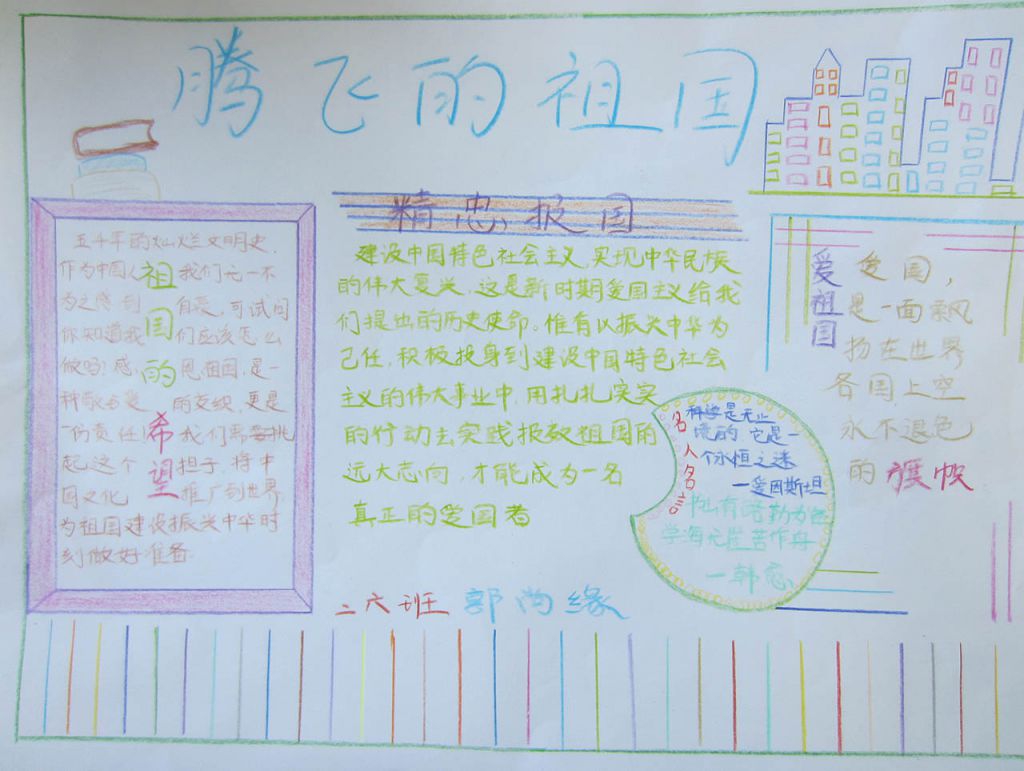 腾飞的祖国
五千年的灿烂文明史,
作为中国人我们无一不
为之感到自豪,可试问
你知道我们应该怎么
做吗?感恩祖国,是一
种敬与爱的交织,更是
一份责任!我们需要挑
起这个担子,将中
国文化推广到世界,
为祖国建设振兴中华时
刻做好准备
祖国的希望
精忠报国
建设中国特色社会主义,实现中华民族
的伟大复兴,这是新时期爱国主义给我
们提出的历史使命。惟有以振兴中华为
己任,积极投身到建设中国特色社会
主义的伟大事业中,用扎扎实实
的行动去实践报效祖国的
远大志向,才能成为一名
真正的爱国者
名人名言
科学是无止
境的它是一
个永恒之迷
一爱因斯坦
书山有路勤为径
学海无崖苦作舟
一韩愈
爱祖国
爱国,
是一面飘
扬在世界
各国上空
永不退色
的旗帜
二六班 郭尚缘